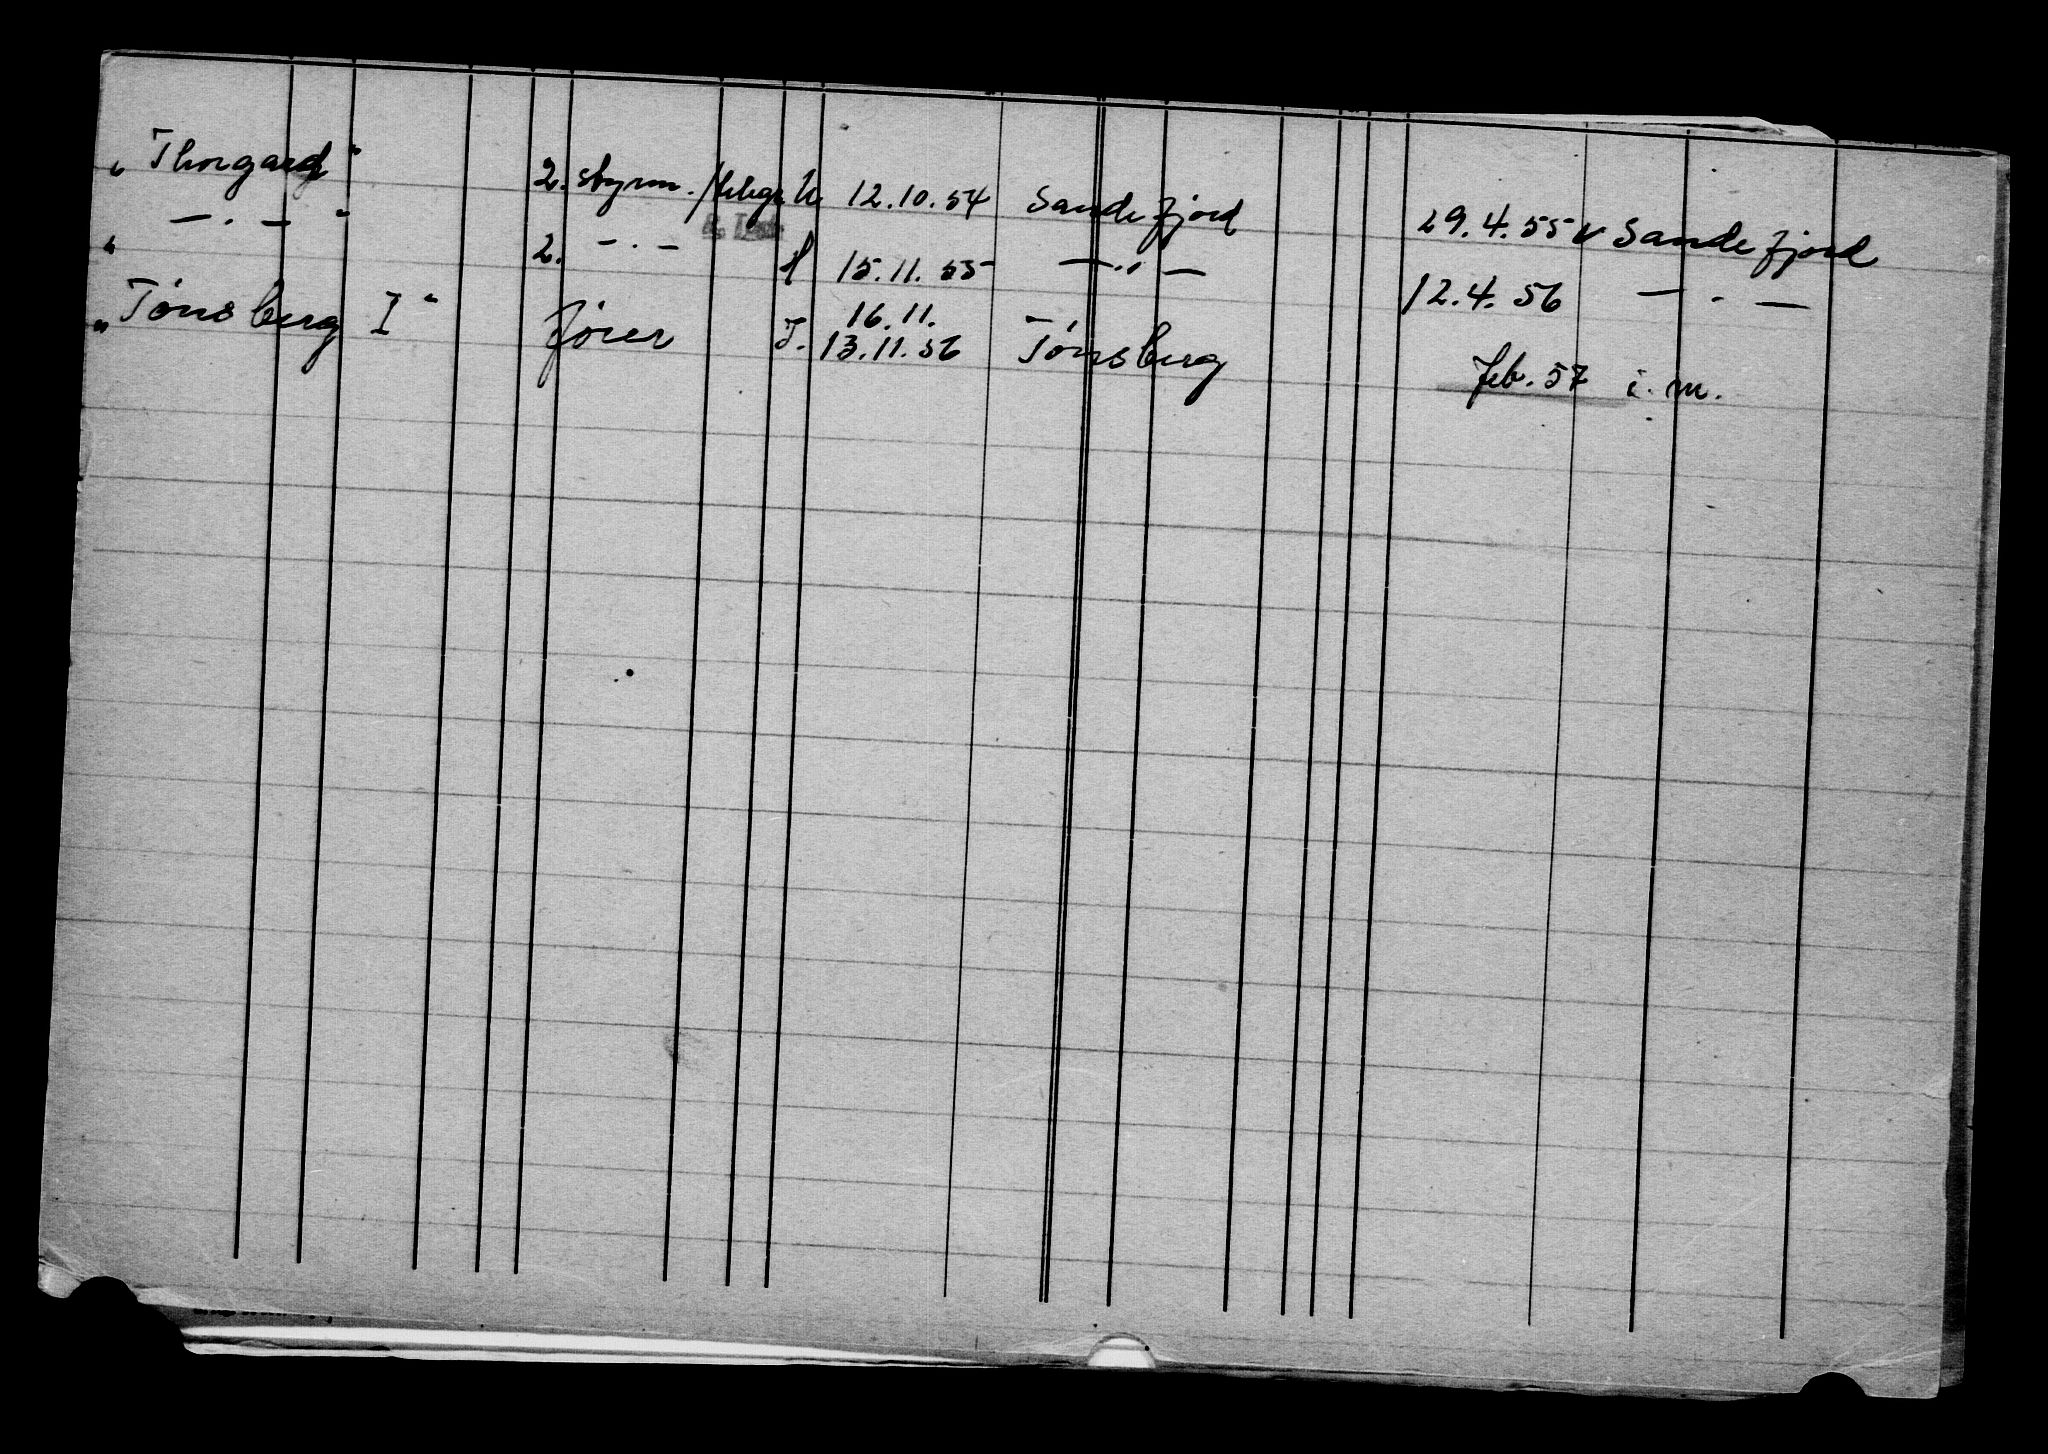 „Thorgard" 2. styrm. /telegr. U 12.10.54 Sandefjord 29.4.55 v Sandefjord
„ — . — " 2. — . — H 15.11.55 — . . — 12.4.56 — . —
„Tönsberg I" förer T. 16.11. 13.11.56 Tönsberg feb. 57 i. m.